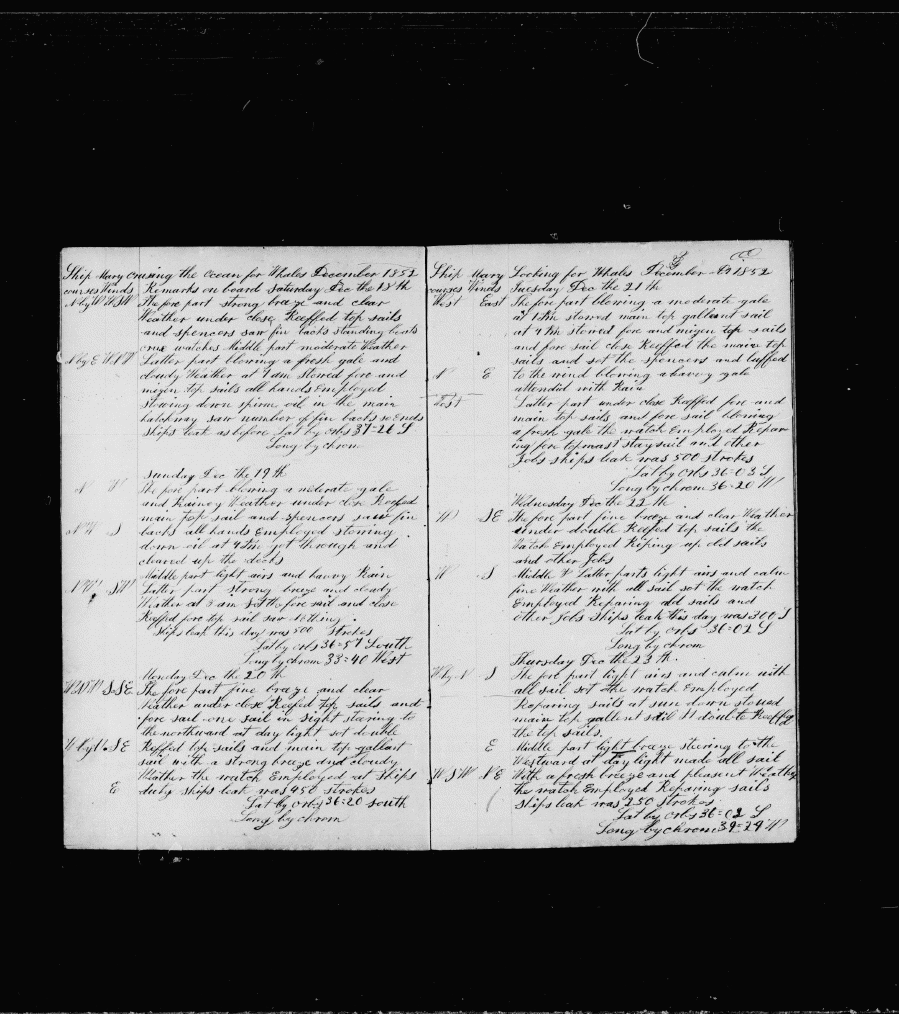 Ship Mary Crusing the ocean for Whales December 1852
courses Winds Remarks on board Saturday Dec the 18th
N by W WSW The fore part strong breze and clear
Weather under close Reeffed top sails
and spencers saw fin backs standing boats
crue watches Middle part moderate Weather
N by E WNW Latter part blowing a fresh gale and
cloudy Weather at 7 am stowed fore and
mizen top sails all hands Employed
stowing down spirm oil in the main
hatchway saw number of fin backs so Ends
ships leak as before Lat by orbs 37=26 S
Long by chrom
Sunday Dec the 19th
N W The fore part blowing a moderate gale
and Rainey Weather under close Reefed
main top sail and spencers saw fin
NW S backs all hands Employed stowing
down oil at 4 Pm got through and
cleared up the decks
Middle part light aers and havvy Rain
NW SW Latter part strong breze and cloudy
Weather at 3 am set the fore sail and close
Reffed fore top sail saw nothin
ships leak this day was 500 strokes
Lat by orbs 36=57 South
Long by chrom 33=40 West
Monday Dec the 20th
WNW SSE The fore part fine breze and clear
Weather under close Reefed top sails and
fore sail one sail in sight steering to
the northward at day light set double
W by N SE Reffed top sails and main top gallant
sail with a strong breze and cloudy
Weather the watch Employed at ships
E duty ships leak was 450 strokes
Lat by orbs 36=20 south
Long by chrom
Ship Mary Looking for Whales December 1852
courses Winds Tuesday Dec the 21th
West East The fore part blowing a moderate gale
at 1 Pm stowed main top gallant sail
at 4 Pm stowed fore and mizen top sails
and fore sail close Reeffed the main top
sails and set the spencers and luffed
N E to the wind blowing a havvy gale
attended with Rain
West Latter part under close Reeffed fore and
main top sails and fore sail blowing
a fresh gale the watch Employed Repar
ing fore topmast stay sail and other
Jobs ships leak was 500 strokes
Lat by orbs 36=03 S
Long by chrom 36=20 W
Wednesday Dec the 22th
W SE The fore part fine breze and clear Weather
under double Reeffed top sails the
Watch Employed Reping up old sails
and other Jobs
W S Middle & Latter parts light airs and calm
fine Weather with all sail set the watch
Employed Reparing old sails and
other Jobs ships leak this day was 300 S
Lat by orbs 36=02 S
Long by chrom
Thursday Dec the 23th
W by N S The fore part light aires and calm with
all sail set the watch Employed
Reparing sails at sun down stowed
main top gallent sail & double Reeffed
the top sails.
E Middle part light breze steering to the
Westward at day light made all sail
WSW NE With a fresh breeze and pleasent Weather
the watch Employed Reparing sails
ships leak was 250 strokes
Lat by orbs 36=02 S
Long by chrom 39=29 W